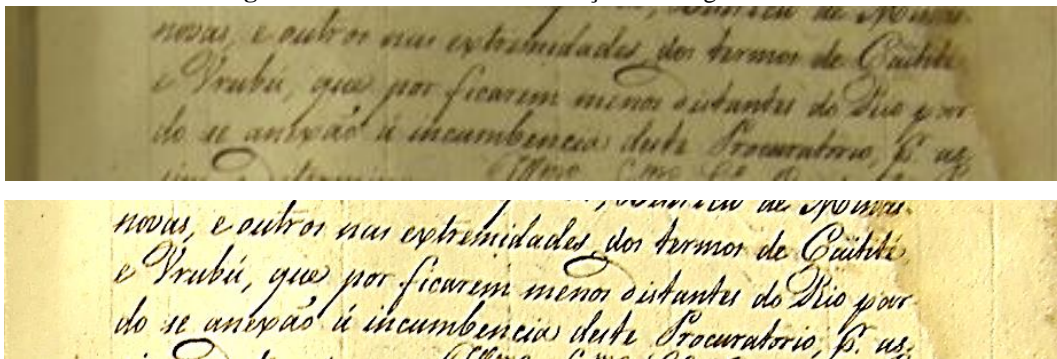 de Minas
novas, e outros nas extremidades dos termos de Caitité
e Vrubú, que por ficarem menos distantes do Rio par
do se anexão á incumbencia deste Procuratorio, p. as
de Minas
novas, e outros nas extremidades dos termos de Caitité
e Vrubú, que por ficarem menos distantes do Rio par
do se anexão á incumbencia deste Procuratorio, p. as.